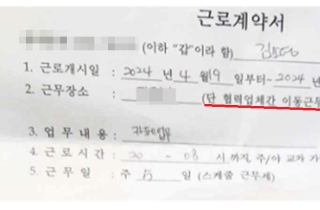 근로계약서
(이하 "갑"이라 함)
1. 근로개시일 : 2024년 4월 9일부터~ 2024
2. 근무장소 : (단 협력업체간 이동근무
3. 업무내용 :
4. 근로시간 : 20 - 08 시까지, 주/야 교차 가
5. 근무일 : 주 5 일 (스케줄 근무제)